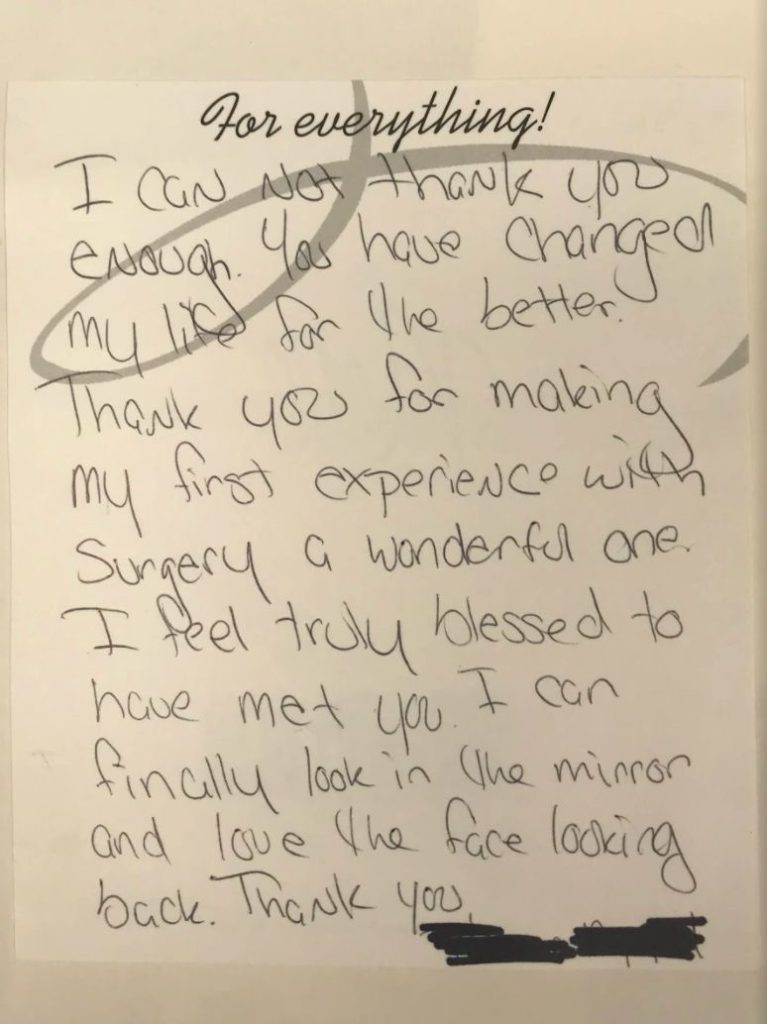 For everything!
I can not thank you
enough. You have changed
my life for the better.
Thank you for making
my first experience with
surgery a wonderful one.
I feel truly blessed to
have met you. I can
finally look in the mirror
and love the face looking
back. Thank you